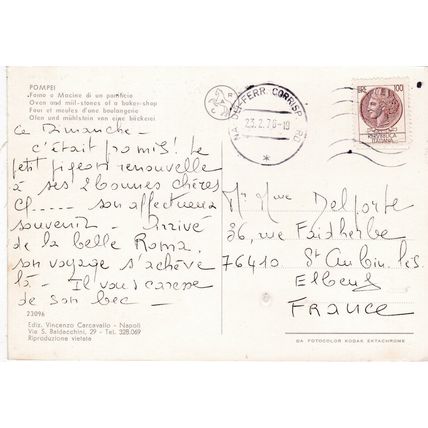 POMPEI
Forno e Macine di un panificio
Oven and mill-stones of a baker-shop
Four et meules d'une boulangerie
Ofen und mühlstein von eine bäckerei
Ce Dimanche -
c'était promis! Le
petit pigeon renouvelle
à ses 2 bonnes chères
Cf..... son affectueux
souvenir - Arrivé
de la belle Roma,
son voyage s'achève
là - Il vous caresse
de son bec -
23096
Ediz. Vincenzo Carcavallo - Napoli
Via S. Baldacchini, 29 - Tel. 328.069
Riproduzione vietata
FERR. CORRISP.
23.2.76-10
LIRE 100
REPVBBLICA
ITALIANA
Mr Mme Delporte
36, rue Faidherbe
76410 St Aubin lès
Elbeuf
France
DA FOTOCOLOR KODAK EKTACHROME